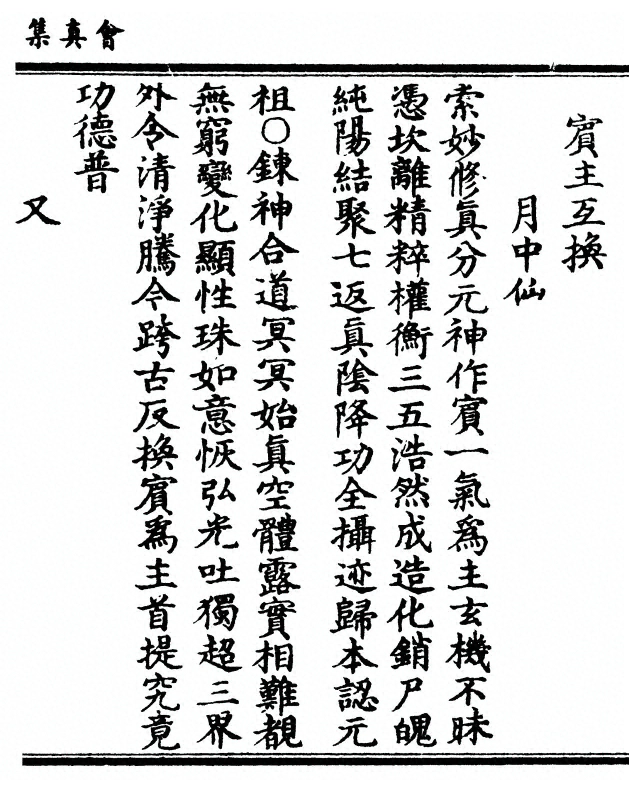 會真集
賓主互換
月中仙
索妙修真分元神作賓一氣為主玄機不昧
憑坎離精粹權衡三五浩然成造化銷尸魄
純陽結聚七返真陰降功全攝迹歸本認元
祖○鍊神合道冥冥始真空體露實相難覩
無窮變化顯性珠如意恢弘光吐獨超三界
外令清淨騰今跨古反換賓為主首提究竟
功德普
又